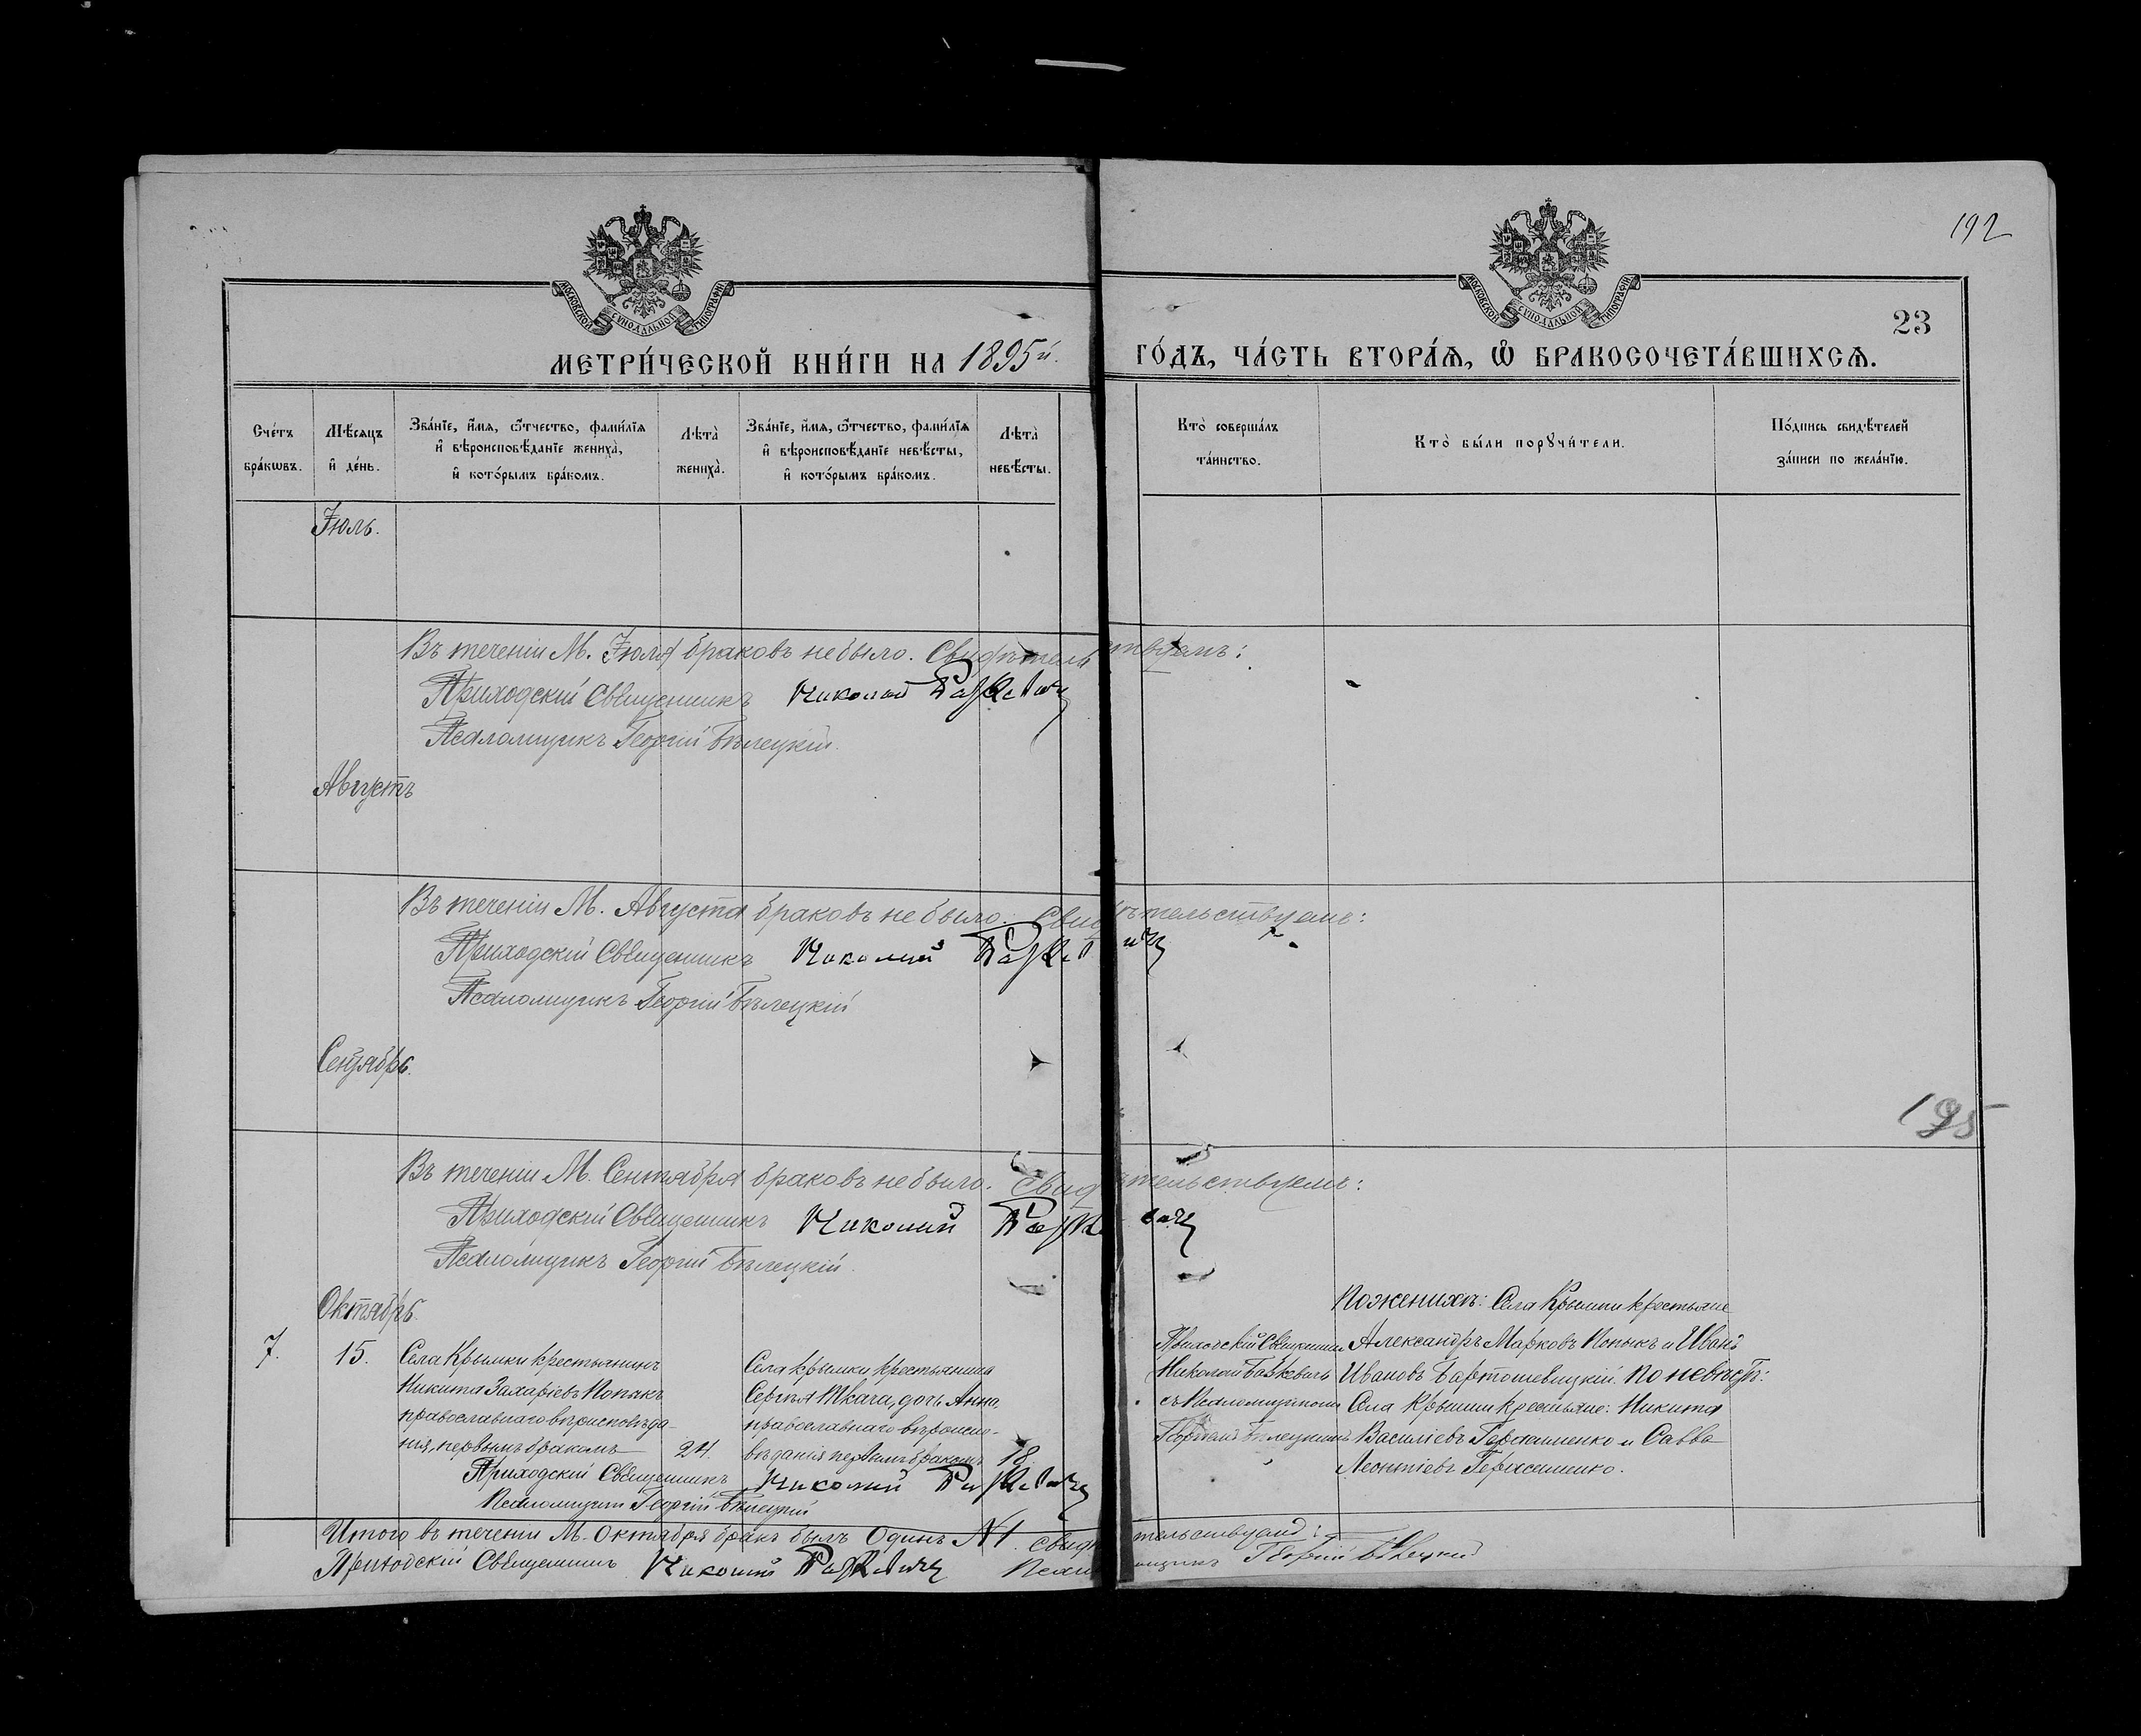 192
23
МОСКОВСКОЙ СУНОДАЛЬНОЙ ТИПОГРАФІИ
МОСКОВСКОЙ СУНОДАЛЬНОЙ ТИПОГРАФІИ
МЕТРИ́ЧЕСКОЙ КНИ́ГИ НА 1895й. ГО́ДЪ, ЧА́СТЬ ВТОРА́Ѧ, Ѽ БРАКОСОЧЕТА́ВШИХСѦ.
Сче́тъ бра́кѡвъ.
Мѣ́сяцъ и҆ де́нь.
Зва́нїе, и҆́мѧ, ѻ҆́тчество, фами́лїѧ и҆ вѣроисповѣ́данїе жениха̀, и҆ кото́рымъ бра́комъ.
Лѣта̀ жениха̀.
Зва́нїе, и҆́мѧ, ѻ҆́тчество, фами́лїѧ и҆ вѣроисповѣ́данїе невѣ́сты, и҆ кото́рымъ бра́комъ.
Лѣта̀ невѣ́сты.
Кто̀ соверша́лъ та́инство.
Кто̀ бы́ли порꙋчи́тели.
По́дпись свидѣ́телей за́писи по жела́нїю.
Іюль.
Въ теченіи М. Іюля браковъ не было. Свидѣтельствуемъ:
Приходскій Священникъ Николай
Псаломщикъ Георгій Бѣлецкій.
Августъ
Въ теченіи М. Августа браковъ не было. Свидѣтельствуемъ:
Приходскій Священникъ Николай
Псаломщикъ Георгій Бѣлецкій
Сентябрь.
195
Въ теченіи М. Сентября браковъ не было. Свидѣтельствуемъ:
Приходскій Священникъ Николай
Псаломщикъ Георгій Бѣлецкій.
Октябрь.
7.
15.
Села Крымки крестьянинъ
Никита Захаріевъ Попыкъ
православнаго вѣроисповѣда-
нія, первымъ бракомъ
24.
Села Крымки крестьянина
Сергѣя Ткача, дочь Анна,
православнаго вѣроиспо-
вѣданія первымъ бракомъ
18.
Приходскій Священникъ
Николай
съ Псаломщикомъ
Георгіемъ Бѣлецкимъ
По женихѣ: Села Крымки крестьяне
Александръ Марковъ Попыкъ и Иванъ
Ивановъ Бартошевицкій. По невѣстѣ:
Села Крымки крестьяне: Никита
Василіевъ Герасименко и Савва
Леонтіевъ Герасименко.
Приходскій Священникъ Николай
Псаломщикъ Георгій Бѣлецкій
Итого въ теченіи М. Октября бракъ былъ Одинъ №1. Свидѣтельствуемъ:
Приходскій Священникъ Николай Псаломщикъ Георгій Бѣлецкій